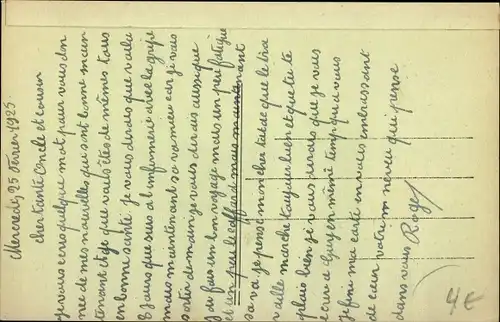 Mercredi, 25 Février 1925
cher tante oncle et cousin
je vous ecres quelque mot pour vous don
ner de mes nouvelles qui sont bonne main
tenant et je que vous êtes de mêmes tous
en bonne santé. je vous dirais que voila
8 jours que suis a l'infirmerie avec la gripe
mais maintenant sa va mieu car je vais
sortir demain je vous dirais aussi que
j'ai fais un bon voyage mais un peu fatigue
et un peu le caffard mais maintenant
sa va je pense mon cher tatae que le bra
vaille marche toujours bien et que tu te
plais bien je vous dirais que je vous
ecrer a Guy en même temp que a vous
je fini ma carte en vous embrassant
de cœur votre neveu qui pense
dans vous Roger
4€